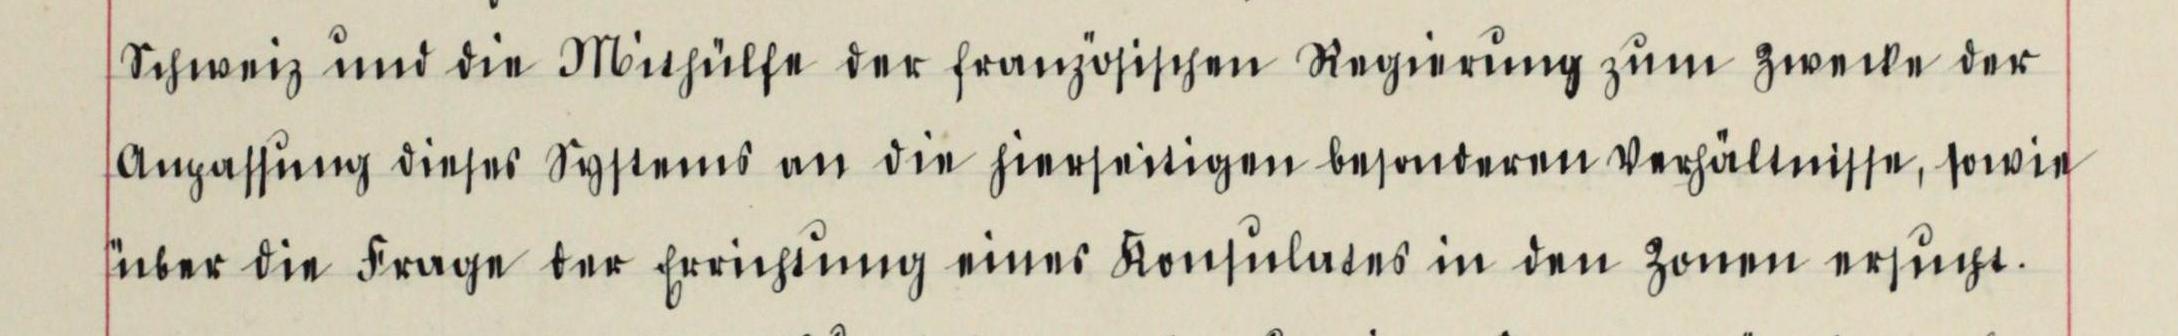 Schweiz und die Mithülfe der französischen Regierung zum Zwecke der
Anpassung dieses Systems an die hierseitigen besonderen Verhältnisse, sowie
über die Frage der Errichtung eines Konsulates in den Zonen ersucht.